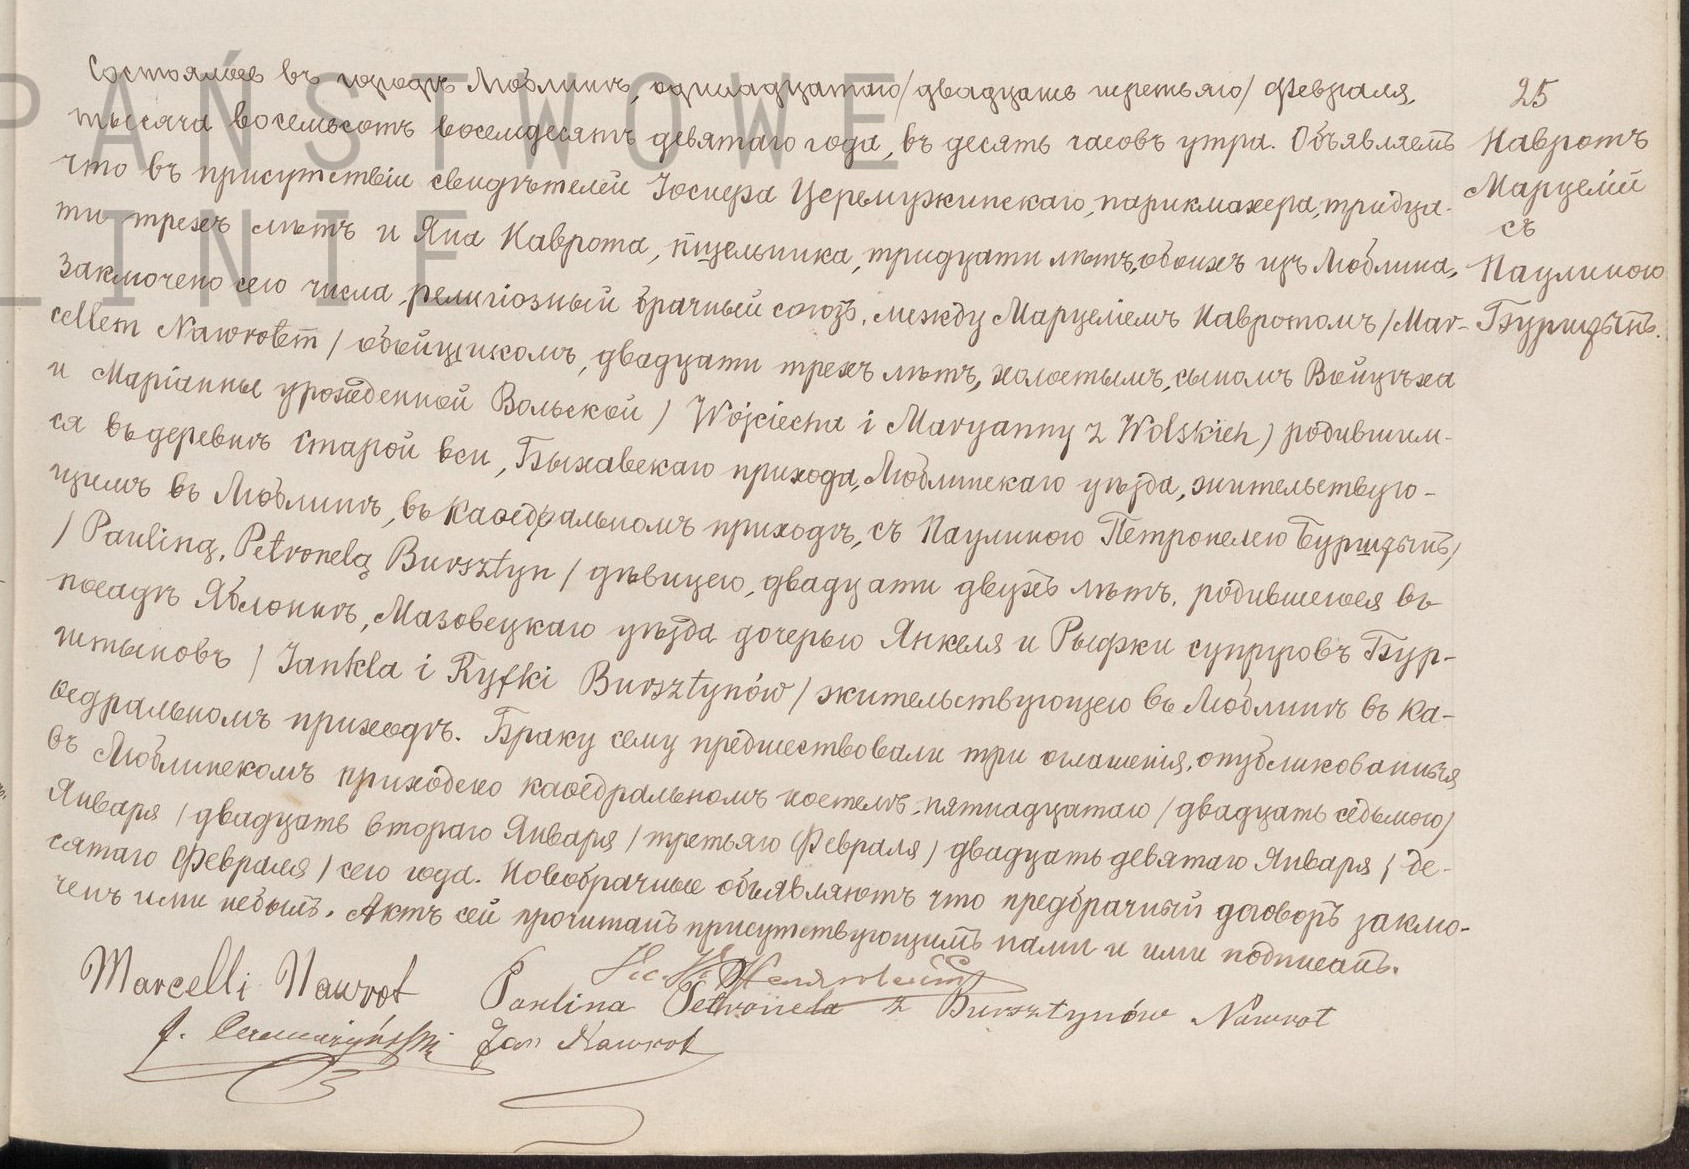 Состоялось въ городѣ Люблинѣ, одинадцатаго /двадцать третьяго/ Февраля,
тысяча восемьсотъ восемдесятъ девятаго года, въ десять часовъ утра. Объявляемъ
что въ присутствіи свидѣтелей Іосифа Церемужинскаго, парикмахера, тридца-
ти трехъ лѣтъ и Яна Наврота, пщельника, тридцати лѣтъ, обоихъ изъ Люблина,
Заключено сего числа религіозный брачный союзъ, между Марцеліемъ Навротомъ /Mar-
cellem Nawrotem/ обойщикомъ, двадцати трехъ лѣтъ, холостымъ, сыномъ Войцѣха
и Маріанны урожденной Вольской / Wojciecha i Maryanny z Wolskich) родившим-
ся въ деревнѣ Старой вси, Быхавскаго прихода, Люблинскаго уѣзда, жительствую-
щимъ въ Люблинѣ, въ Каѳедральномъ приходѣ, съ Паулиною Петронелею Бурштынъ/
/ Pauliną, Petronelą Bursztyn / дѣвицею, двадцати двухъ лѣтъ, родившеюся въ
посадѣ Яблоннѣ, Мазовецкаго уѣзда дочерью Янкеля и Рыфки супруговъ Бур-
штыновъ / Jankla i Ryfki Bursztynów / жительствующею въ Люблинѣ въ Ка-
ѳедральномъ приходѣ. Браку сему предшествовали три оглашенія, опубликованныя
въ Люблинскомъ приходско каѳедральномъ костелѣ, пятнадцатаго /двадцать седьмого/
Января / двадцать втораго Января / третьяго Февраля / двадцать девятаго Января / де-
сятаго Февраля / сего года. Новобрачные объявляютъ что предбрачный договоръ заклю-
ченъ ими небылъ. Актъ сей прочитанъ присутствующимъ нами и ими подписанъ.
Marcelli Nawrot Paulina Petronela z Bursztynów Nawrot
J. Ceremużyński Jan Nawrot
25
Навротъ
Марцелій
съ
Паулиною
Бурштынъ.
PAŃSTWOWE
LINIE